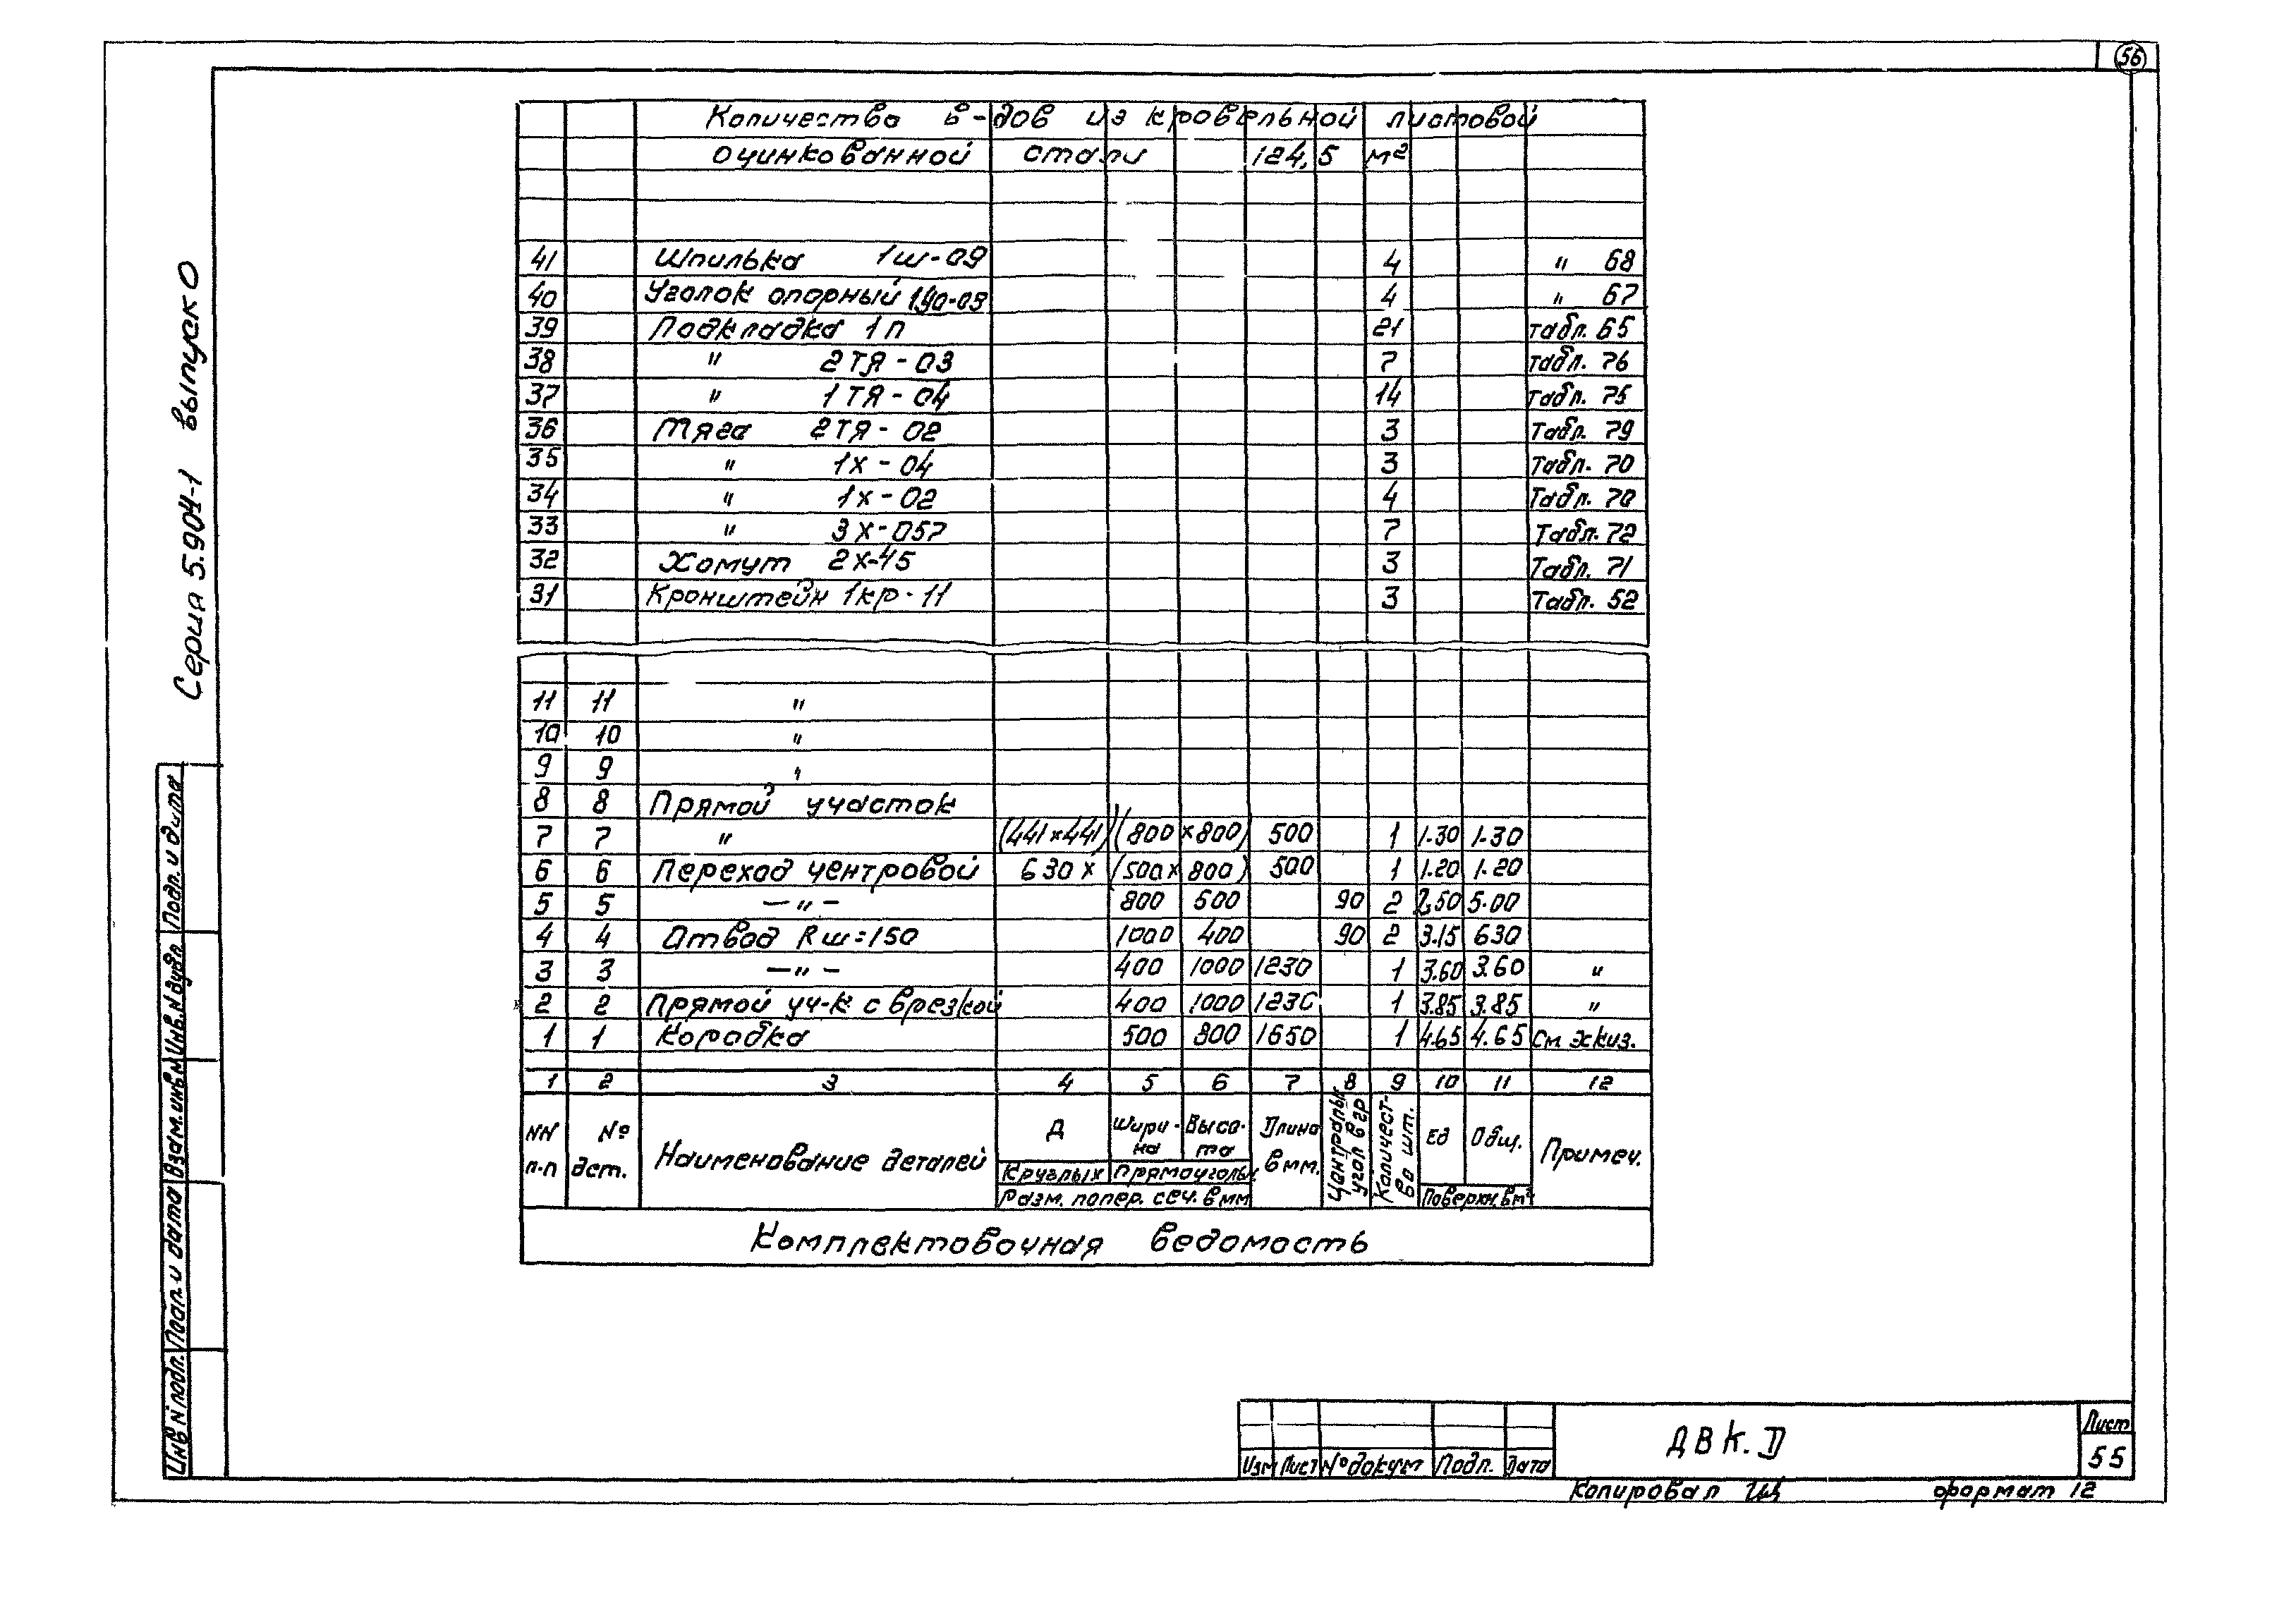 56
Количество в-дов из кровельной листовой
оцинкованной стали 124,5 м²
41 Шпилька 1ш-09 4 " 68
40 Уголок опорный 1УО-03 4 " 67
39 Подкладка 1п 21 Табл. 65
38 " 2ТЯ-03 7 Табл. 76
37 " 1ТЯ-04 14 Табл. 75
36 Тяга 2ТЯ-02 3 Табл. 79
35 " 1х-04 3 Табл. 70
34 " 1х-02 4 Табл. 70
33 " 3х-057 7 Табл. 72
32 Хомут 2х-45 3 Табл. 71
31 Кронштейн 1кр-11 3 Табл. 52
11 11 "
10 10 "
9 9 "
8 8 Прямой участок
7 7 " (441х441) (800 х800) 500 1 1.30 1.30
6 6 Переход центровой 630х (500х 800) 500 1 1.20 1.20
5 5 —"— 800 500 90 2 2,50 5.00
4 4 Отвод Rш=150 1000 400 90 2 3.15 630
3 3 —"— 400 1000 1230 1 3.60 3.60 "
2 2 Прямой уч-к с врезкой 400 1000 1230 1 3.85 3.85 "
1 1 Коробка 500 800 1650 1 4.65 4.65 См эскиз.
1 2 3 4 5 6 7 8 9 10 11 12
NN п.п
№ дет.
Наименование деталей
Д
Шири-на
Высо-та
Круглых Прямоугольн.
Разм. попер. сеч. в мм
Длина в мм.
Центральн. угол в гр
Количест-во шт.
Ед Общ.
Поверхн. в м²
Примеч.
Комплектовочная ведомость
Серия 5.904-1 выпуск 0
Инв N подл. Подп. и дата Взам. инв N Инв. N дубл. Подп. и дата
Изм Лист № докум Подп. Дата
ДВК.D
Лист
55
Копировал
Формат 12